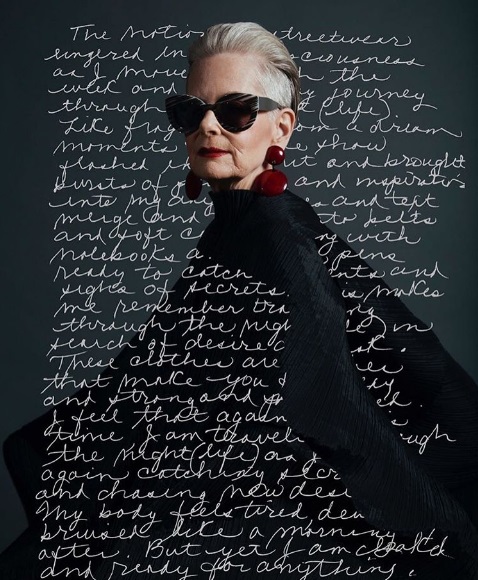 The notio streetwear
lingered in sciousness
as I move in the
week and my journey
through (life)
Like frag om a dream
moments e show
flashed in ut and brought
bursts of and
into my day s and text
merge and to belts
and soft c ng with
notebooks a pens
ready to catch nts and
sighs of secrets. is makes
me remember tra ng
through the nigh e) in
search of desire
These clothes are
that make you
and strong and d.
I feel that again
time I am traveli ough
the night (life) as I
again catching secr
and chasing new desi
My body feels tired de
bruised like a morning
after. But yet I am
and ready for anything.